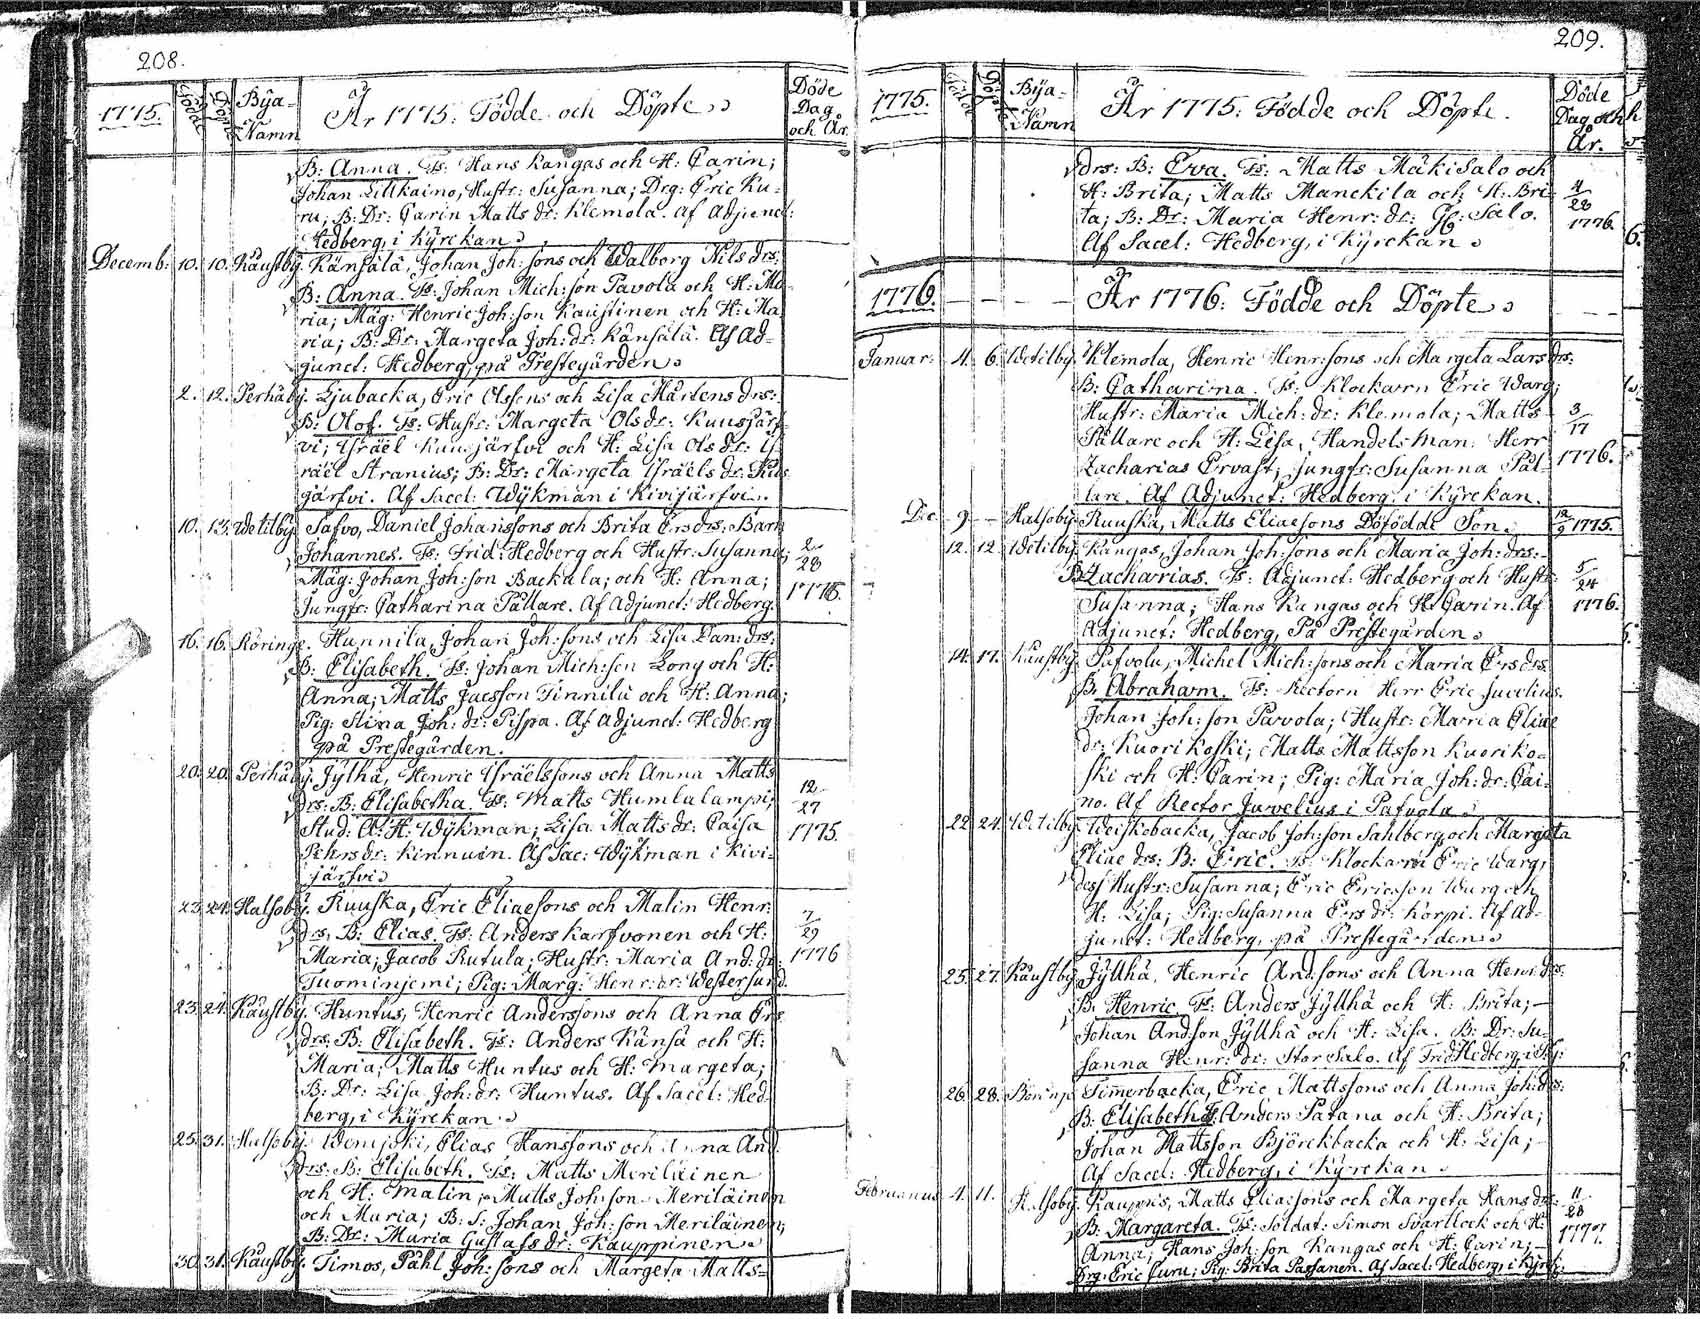 208.
1775. Födde Döpte Bÿa-Namn År 1775: Födde och Döpte Döde Dag och År.
B: Anna. Fs: Hans Kangas och H: Carin;
Johan Lillkaino, Hustr: Susanna; Drg: Eric Ku-
ru; B: Dr: Carin Matts dr: Klemola. Af Adjunct:
Hedberg, i Kÿrckan
Decemb: 10. 10. Kaustby. Känsälä, Johan Joh:sons och Walborg Nils drs:
B: Anna. Fs: Johan Mich:son Pavola och H: Ma-
ria; Måg: Henric Joh:son Kaustinen och H: Ma
ria; B: Dr: Margeta Joh: dr: Känsälä. Af Ad-
junct: Hedberg, på Prestegården
2. 12. Perhåbÿ. Ljubacka, Eric Olssons och Lisa Mårtens drs:
B: Olof. Fs: Hustr: Margeta Ols dr: Kuusjärf-
vi; Israël Kuusjärfvi och H: Lisa Ols dr: Is
raël Stranius; B: Dr: Margeta Israëls dr: Kus
järfvi. Af Sacel: Wÿkman i Kivijärfvi.
10. 13. Wetilbÿ. Safvo, Daniel Johanssons och Brita Ers drs, Barn
Johannes. Fs: Frid: Hedberg och Hustr: Susanna; 2/28
Måg: Johan Joh:son Backala; och H: Anna; 1776.
Jungfr: Catharina Pällare. Af Adjunct: Hedberg.
16. 16. Köringe. Hannila, Johan Joh:sons och Lisa Dan: drs:
B: Elisabeth. Fs: Johan Mich:son Long och H:
Anna; Matts Jacsson Finnilä och H: Anna;
Pig: Stina Joh: dr: Pispa. Af Adjunct: Hedberg
på Prestegården.
20. 20. Perhåbÿ. Jÿlhä, Henric Israëlssons och Anna Matts
drs: B: Elisabetha. Fs: Matts Humlalampi; 12/27
Stud: A: H: Wÿkman; Lisa Matts dr: Caisa 1775.
Pehrs dr: Kinnuin. Af Sac: Wÿkman i Kivi-
järfvi
23. 24. Halsobÿ. Ruuska, Eric Eliaesons och Malin Henr:
drs, B: Elias. Fs: Anders Karfvonen och H: 7/29
Maria; Jacob Rutula; Hustr: Maria And: dr: 1776
Tuominjemi; Pig: Marg: Henr: dr: Westersund.
23. 24. Kaustby. Huntus, Henric Anderssons och Anna Ers
drs, B: Elisabeth. Fs: Anders Känsä och H:
Maria; Matts Huntus och H: Margeta;
B: Dr: Lisa Joh: dr: Huntus. Af Sacel: Hed-
berg, i Kÿrckan
25. 31. Halsobÿ. Elias Hanssons och Anna And:
drs: B: Elisabeth. Fs: Matts Meriläinen
och H: Malin; Matts Joh:son Meriläinen
och Maria; B: S: Johan Joh:son Meriläinen;
B: Dr: Maria Gustafs dr: Kauppinen
30. 31. Kaustby. Timos, Påhl Joh:sons och Margeta Matts-
209.
1775. Födde Döpte Bÿa-Namn År 1775: Födde och Döpte. Döde Dag och År.
drs: B: Eva. Fs: Matts Mäkisalo och
H: Brita; Matts Manckila och H: Bri- 4/28
ta; B: Dr: Maria Henr: dr: Salo. 1776.
Af Sacel: Hedberg, i Kÿrckan
1776. År 1776: Födde och Döpte
Januar: 4. 6. Wetilbÿ. Klemola, Henric Henr:sons och Margeta Lars drs:
B: Catharina. Fs: Klockarn Eric Warg;
Hustr: Maria Mich: dr: Klemola; Matts 3/17
Pällare och H: Lisa; Handels Man: Herr 1776.
Zacharias Ervast; Jungfr: Susanna Päl-
lare. Af Adjunct: Hedberg, i Kÿrckan.
Dec 9. Halsobÿ. Ruuska, Matts Eliaesons Döfödde Son. 12/9 1775.
12. 12. Wetilbÿ. Kangas, Johan Joh:sons och Maria Joh: drs:
B: Zacharias. Fs: Adjunct: Hedberg och Hustr: 5/24
Susanna; Hans Kangas och H: Carin. Af 1776.
Adjunct: Hedberg, På Prestegården
14. 17. Kaustby. Pafvola, Michel Mich:sons och Maria Ers drs:
B: Abraham. Fs: Rectorn Herr Eric Juvelius.
Johan Joh:son Pavola; Hustr: Maria Eliae
dr: Kuorikoski; Matts Mattsson Kuoriko-
ski och H: Carin; Pig: Maria Joh: dr: Cai-
no. Af Rector Juvelius i Pafvola
22. 24. Wetilbÿ. Weiskebacka, Jacob Joh:son Sahlberg och Margeta
Eliae drs: B: Eric. Fs: Klockarn Eric Warg,
dess Hustr: Susanna; Eric Ericsson Warg och
H: Lisa; Pig: Susanna Ers dr: Korpi. Af Ad-
junct: Hedberg, på Prestegården
25. 27. Kaustby. Jÿlhä, Henric And:sons och Anna Henr: drs:
B: Henric. Fs: Anders Jÿlhä och H: Brita;
Johan And:son Jÿlhä och H: Lisa. B: Dr: Su-
sanna Henr: dr: Stor Salo. Af Frid: Hedberg, i
26. 28. Timerbacka, Eric Mattssons och Anna Joh: drs:
B: Elisabeth. Fs: Anders Patana och H: Brita;
Johan Mattsson Björckbacka och H: Lisa;
Af Sacel: Hedberg, i Kÿrckan
Februarius 4. 11. Halsobÿ. Kauppis, Matts Elia:sons och Margeta Hans drs: 11/28
B: Margareta. Fs: Soldat: Simon Svartlock och H: 1777.
Anna; Hans Joh:son Kangas och H: Carin;
Drg: Eric Curu; Pig: Brita Passanen. Af Sacel: Hedberg, i Kÿrk: